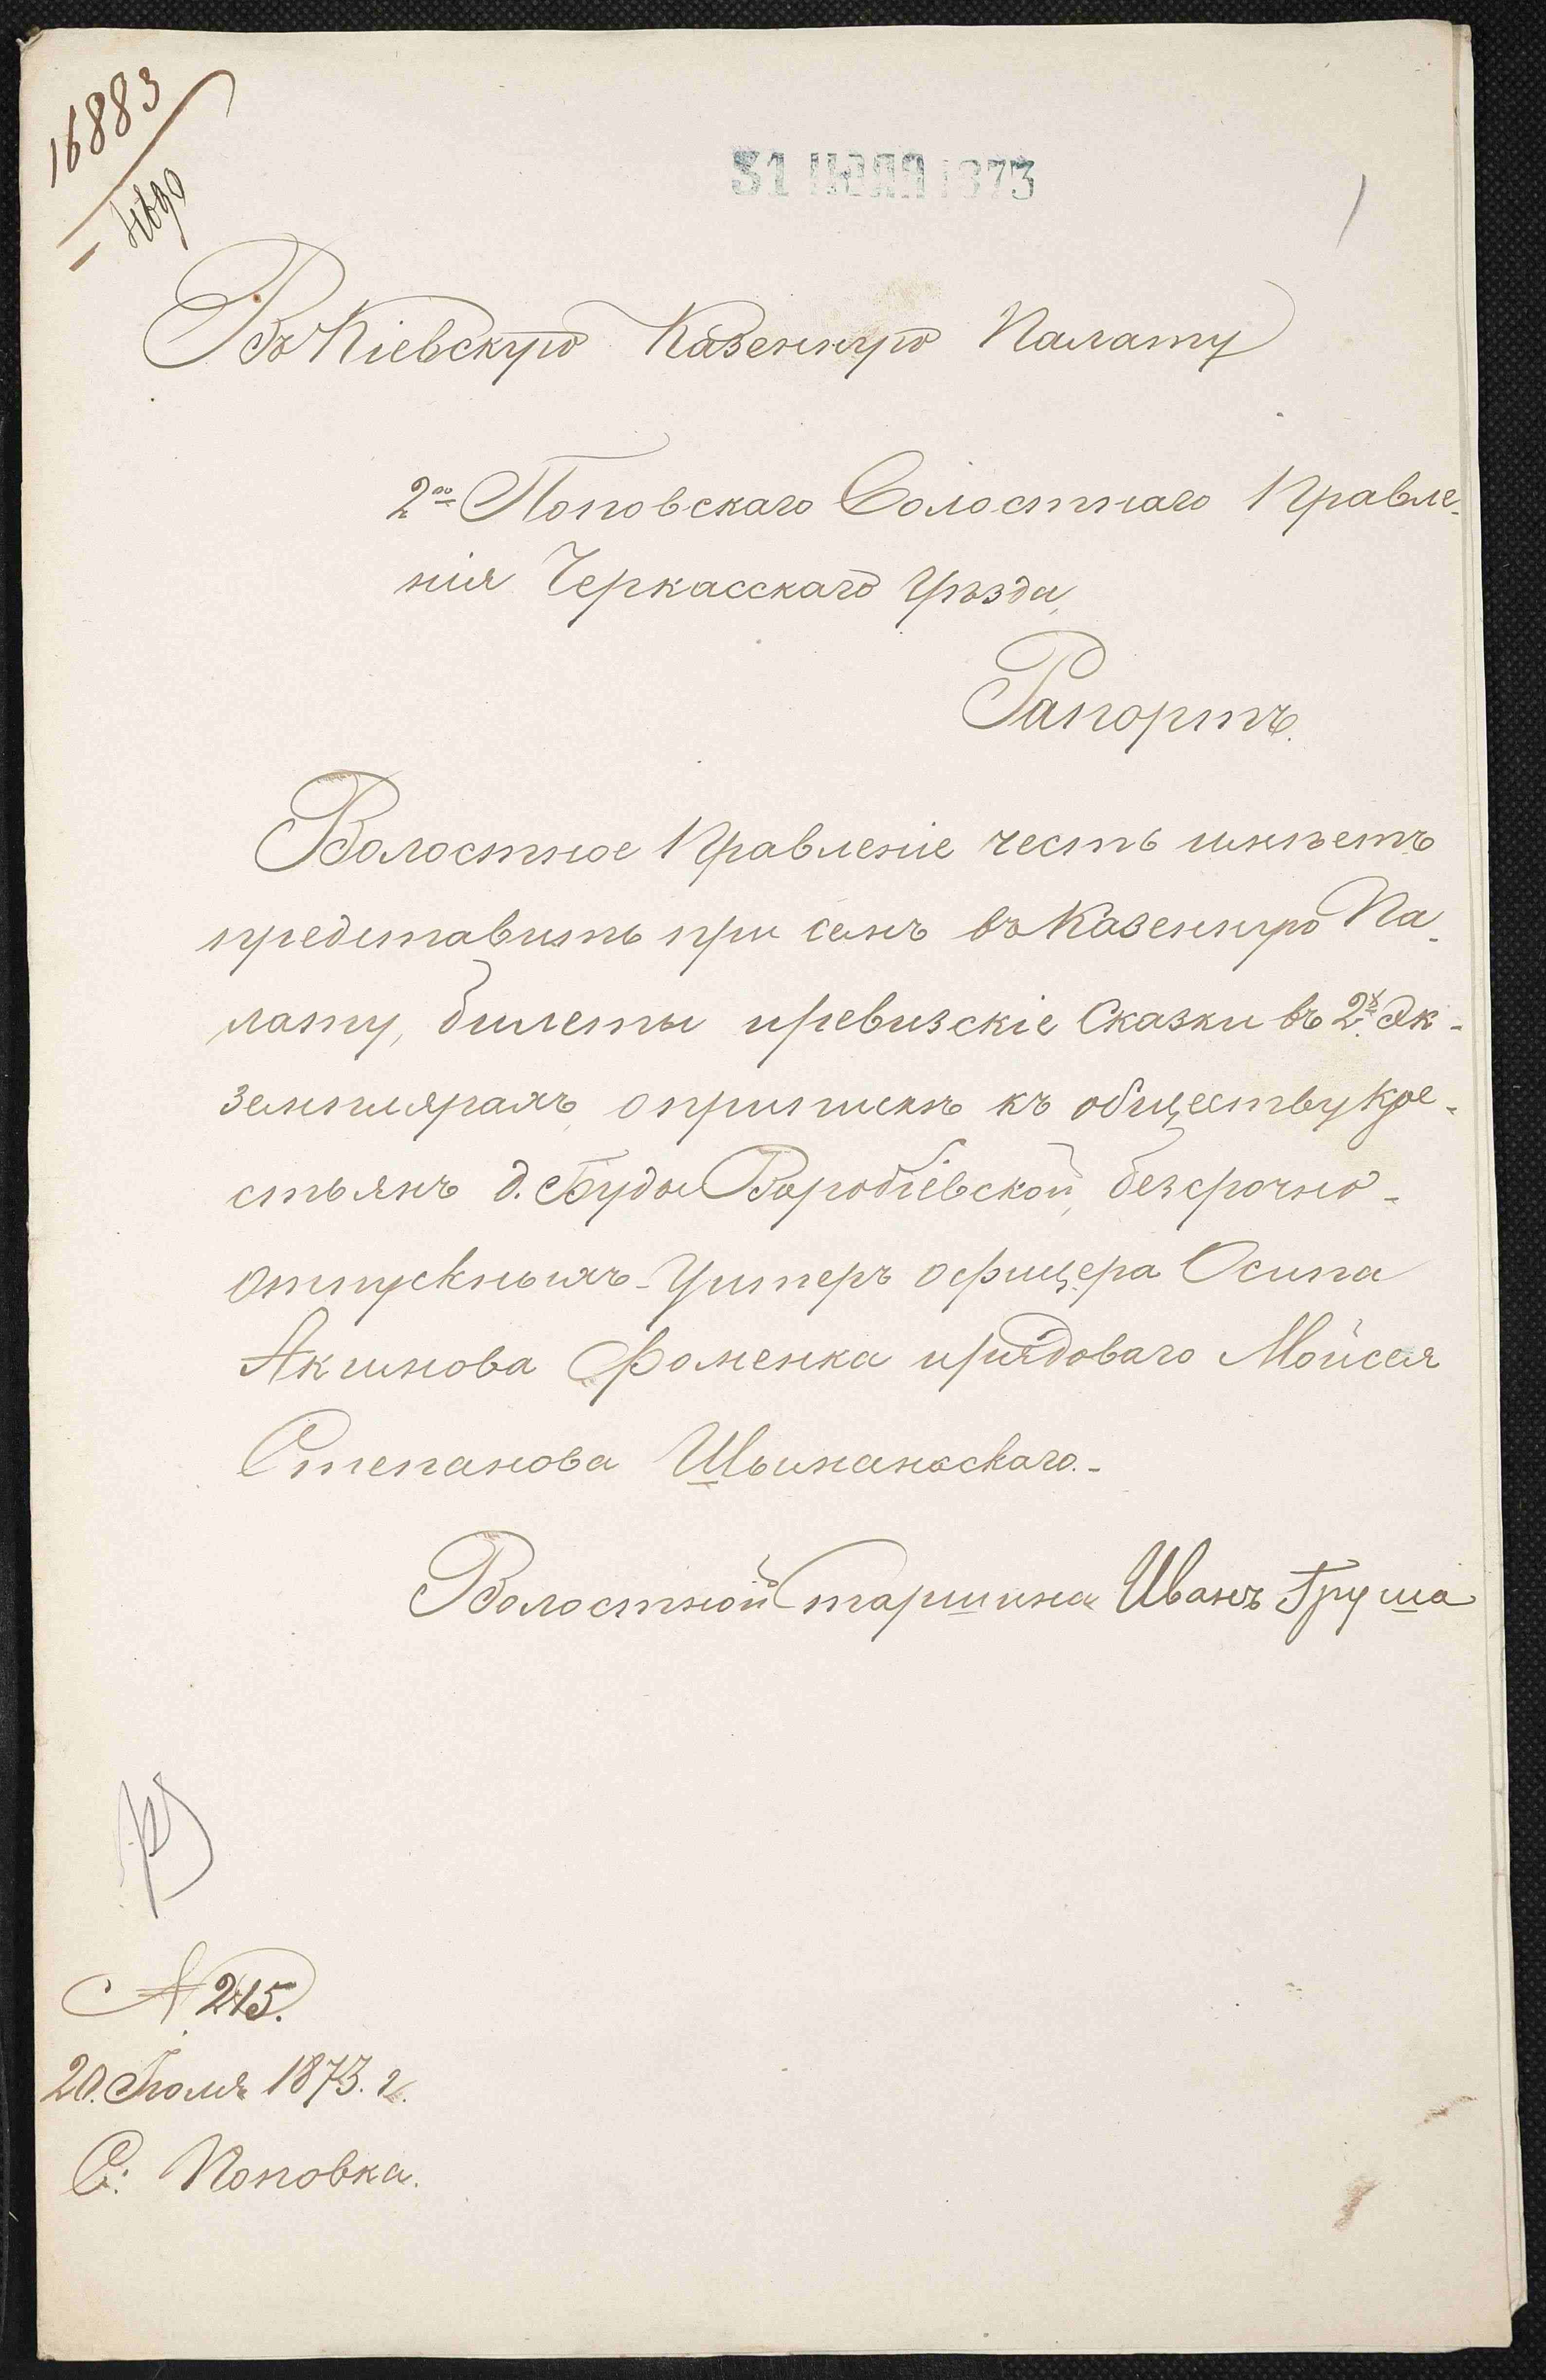 16883
31 ИЮЛЯ 1873
1
Въ Кіевскую Казенную Палату
2го Поповскаго Волостнаго Правле-
нія Черкасскаго Уѣзда
Рапортъ.
Волостное Правленіе честь имѣетъ
представить при семъ въ Казенную Па-
лату, билеты и ревизскіе Сказки въ 2х Эк-
земплярахъ, о припискѣ къ обществу кре-
стьянъ д. Буды Воробіевской, безсрочно-
отпускныхъ Унтеръ офицера Осипа
Акимова Фоменка и рядоваго Мойсея
Степанова
Волостной Старшина Иванъ Груша
N 245.
20. Іюля 1873. г.
С: Поповка.